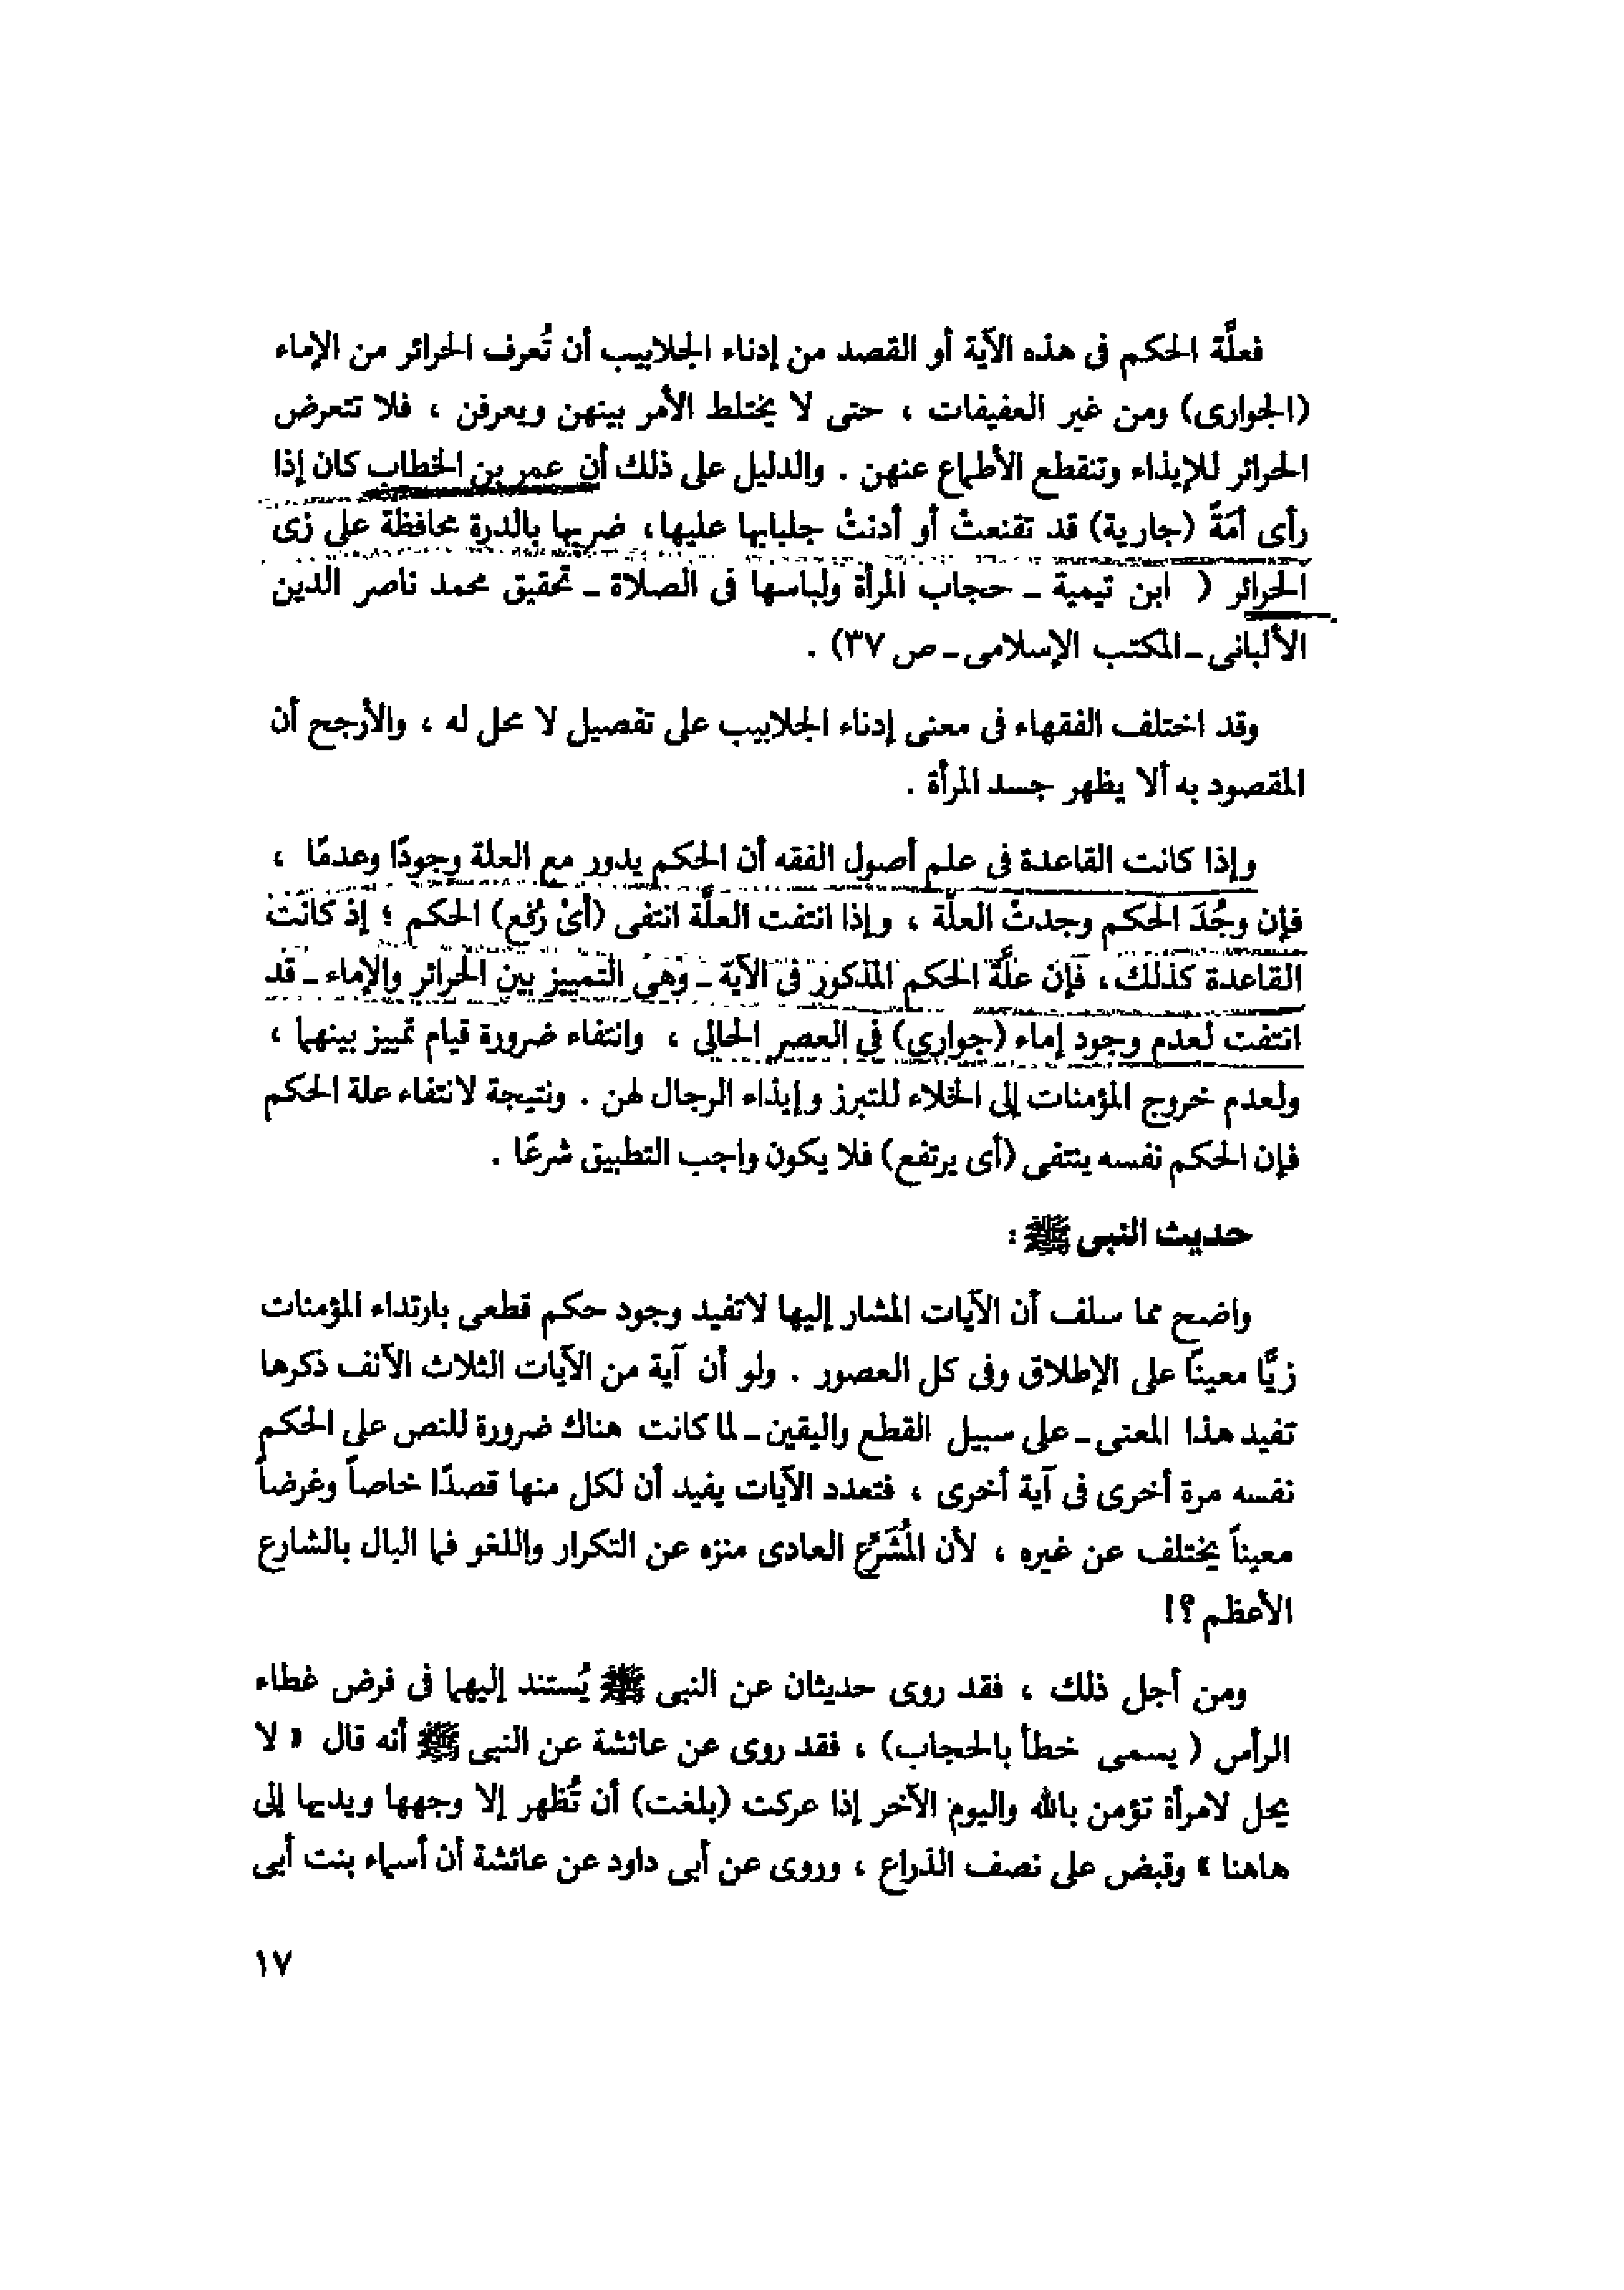 فعلَّة الحكم فى هذه الآية أو القصد من إدناء الجلابيب أن تُعرف الحرائر من الإماء
(الجوارى) ومن غير العفيفات ، حتى لا يختلط الأمر بينهن ويعرفن ، فلا تتعرض
الحرائر للإيذاء وتنقطع الأطماع عنهن . والدليل على ذلك أن عمر بن الخطاب كان إذا
رأى أمَةً (جارية) قد تقنعتْ أو أدنتْ جلبابها عليها، ضربها بالدرة محافظة على زى
الحرائر ( ابن تيمية ـ حجاب المرأة ولباسها فى الصلاة ـ تحقيق محمد ناصر الدين
الألبانى ـ المكتب الإسلامى ـ ص ٣٧) .
وقد اختلف الفقهاء فى معنى إدناء الجلابيب على تفصيل لا محل له ، والأرجح أن
المقصود به ألا يظهر جسد المرأة .
وإذا كانت القاعدة فى علم أصول الفقه أن الحكم يدور مع العلة وجودًا وعدمًا ،
فإن وجُدَ الحكم وجدتْ العلَّة ، وإذا انتفت العلَّة انتفى (أىْ رُفع) الحكم ؛ إذ كانت
القاعدة كذلك ، فإن علَّة الحكم المذكور فى الآية ـ وهى التمييز بين الحرائر والإماء ـ قد
انتفت لعدم وجود إماء (جوارى) فى العصر الحالى ، وانتفاء ضرورة قيام تمييز بينهما ،
ولعدم خروج المؤمنات إلى الخلاء للتبرز وإيذاء الرجال لهن . ونتيجة لانتفاء علة الحكم
فإن الحكم نفسه ينتفى (أى يرتفع) فلا يكون واجب التطبيق شرعًا .
حديث النبى ﷺ :
واضح مما سلف أن الآيات المشار إليها لاتفيد وجود حكم قطعى بارتداء المؤمنات
زيًّا معينًا على الإطلاق وفى كل العصور . ولو أن آية من الآيات الثلاث الآنف ذكرها
تفيد هذا المعنى ـ على سبيل القطع واليقين ـ لما كانت هناك ضرورة للنص على الحكم
نفسه مرة أخرى فى آية أخرى ، فتعدد الآيات يفيد أن لكل منها قصدًا خاصاً وغرضاً
معيناً يختلف عن غيره ، لأن المُشَرِّع العادى منزه عن التكرار واللغو فما البال بالشارع
الأعظم ؟!
ومن أجل ذلك ، فقد روى حديثان عن النبى ﷺ يُستند إليهما فى فرض غطاء
الرأس ( يسمى خطأ بالحجاب) ، فقد روى عن عائشة عن النبى ﷺ أنه قال « لا
يحل لامرأة تؤمن بالله واليوم الآخر إذا عركت (بلغت) أن تُظهر إلا وجهها ويديها إلى
هاهنا » وقبض على نصف الذراع ، وروى عن أبى داود عن عائشة أن أسماء بنت أبى
١٧